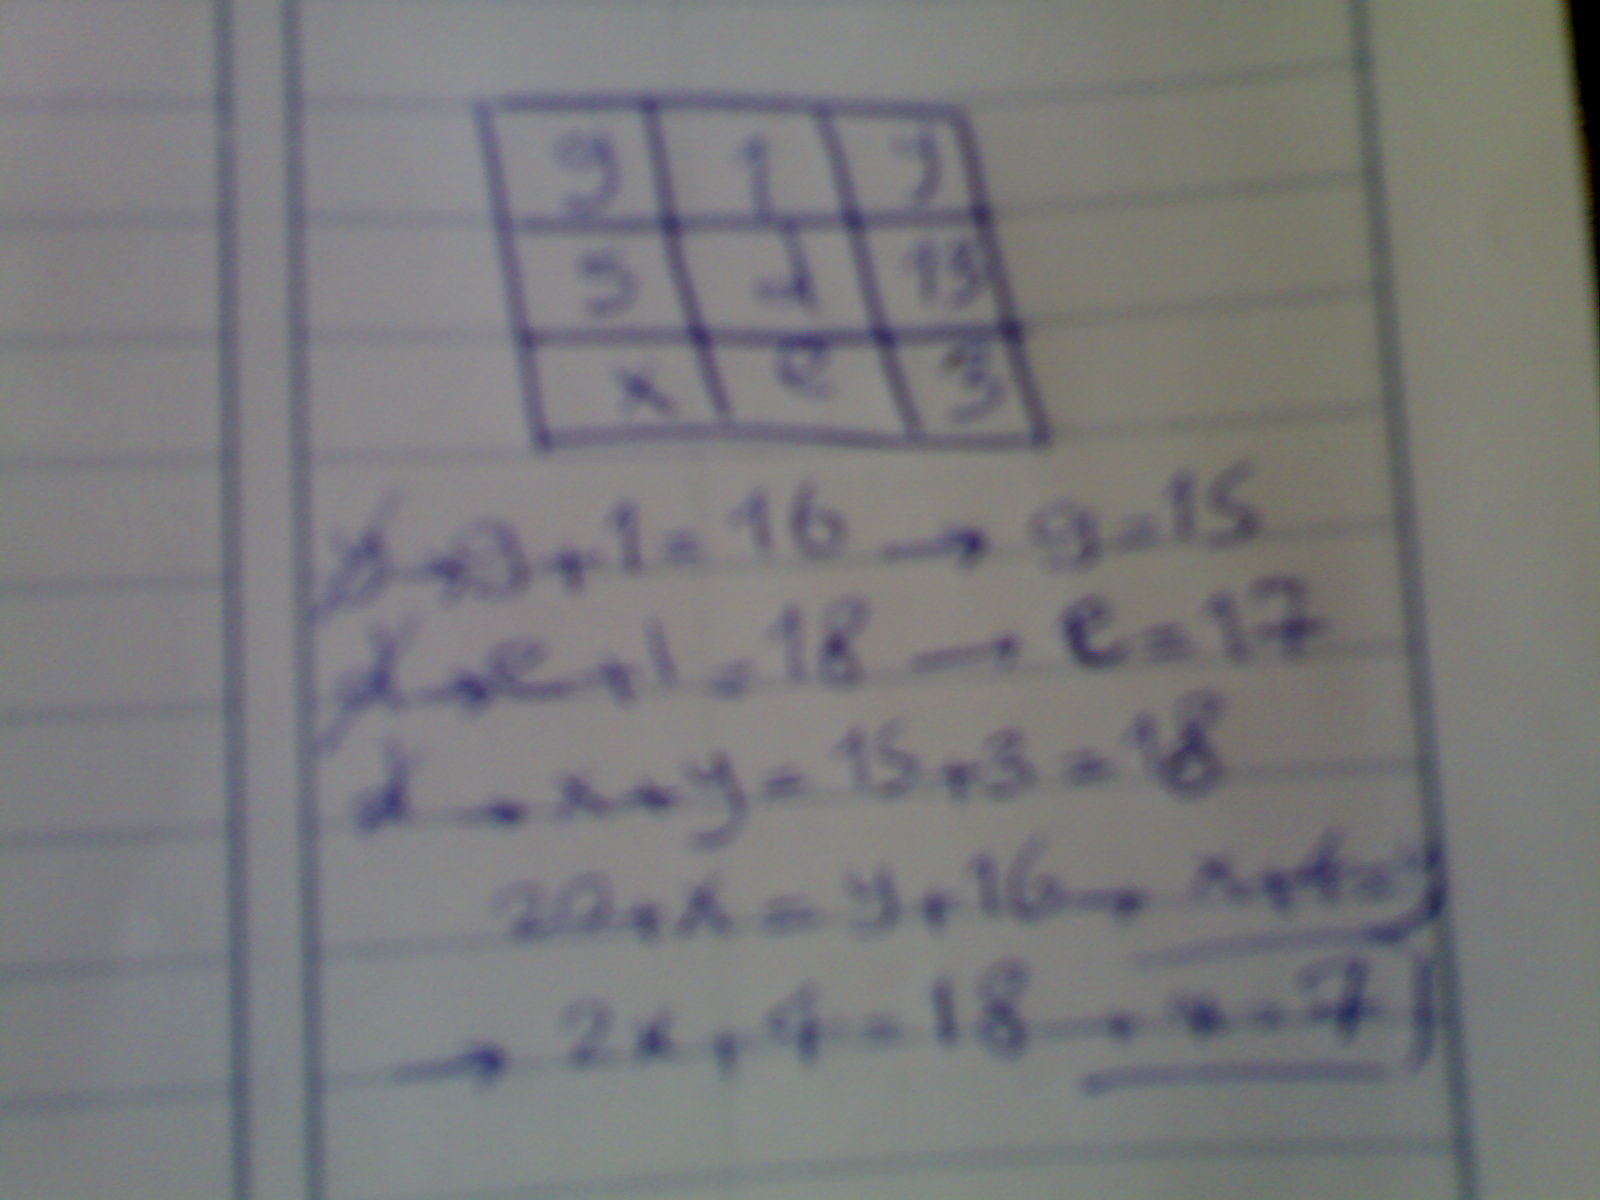 g 1 y
5 d 13
x e 3
d + g + 1 = 16 → g = 15
d + e + 1 = 18 → e = 17
d + x + y = 15 + 3 = 18
20 + x = y + 16 → x + 4 = y
→ 2x + 4 = 18 → x = 7